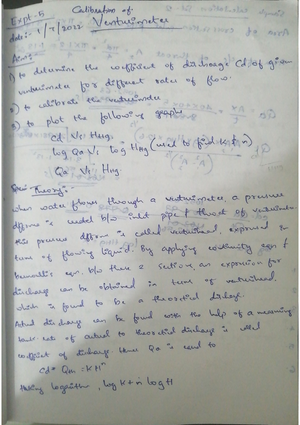 Expt-5 Calibration of
date:- 1/7/2022 Venturimeter
Aim:-
1) to determine the coefficient of discharge Cd of given
venturimeter for different rates of flow.
2) to calibrate the venturimeter
3) to plot the following graphs
Cd Vs Hmg
log Qa Vs log Hmg (used to find k & n)
Qa Vs Hmg
Theory:-
When water flows through a venturimeter, a pressure
is b/w inlet pipe & throat of venturimeter
this pressure is called venturihead, expressed in
term of flowing liquid. By applying continuity eqn &
bernoullis eqn. b/w these 2 sections, an expression for
discharge can be obtained in terms of venturihead.
which is found to be a theoretical discharge.
Actual discharge can be found with the help of a measuring
tank. ratio of actual to theoretical discharge is called
coefficient of discharge Qa is used to
Qa = KHⁿ
taking logarithm, log K + n log H